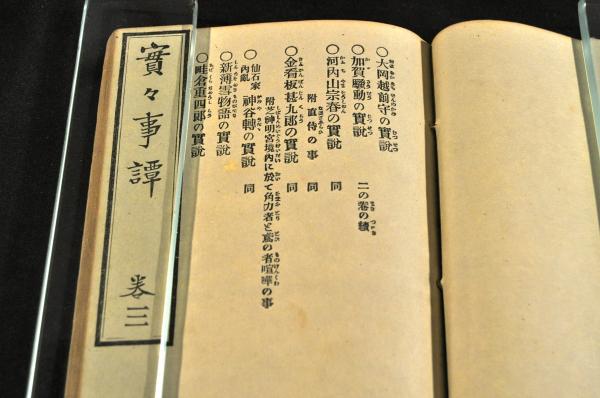 ○大岡越前守の實說
○加賀騷動の實說 二の卷の續
○河內山宗春の實說 同
附直侍の事 同
○金看板甚九郎の實說 同
附芝神明宮境內に於て角力者と鳶の者喧嘩の事
○仙石家內亂 神谷轉の實說 同
○新薄雪物語の實說
○畦倉重四郎の實說
實々事譚 卷三